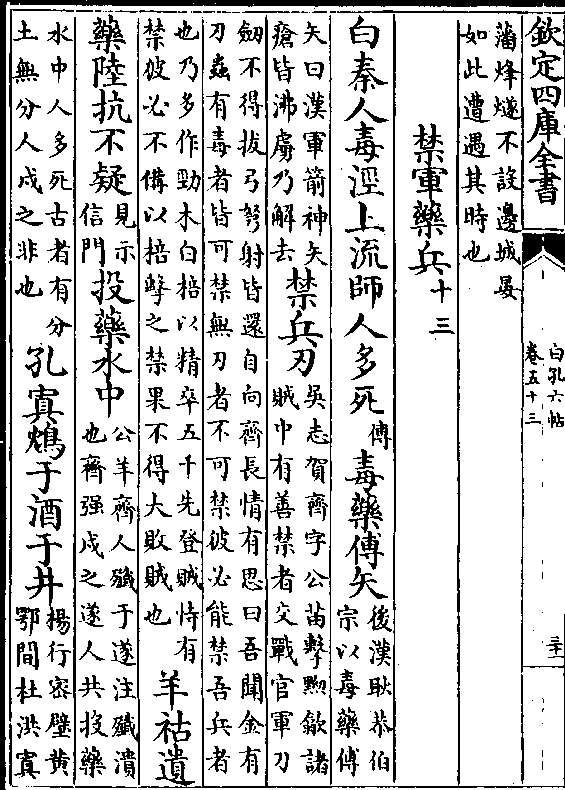 欽定四庫全書
白孔六帖
卷五十三
三十一
藩烽燧不設邊城晏
如此遭遇其時也
禁軍藥兵十三
白秦人毒涇上流師人多死傳毒藥傅矢後漢耿恭伯
宗以毒藥傅
矢曰漢軍箭神矢
瘡皆沸虜乃解去禁兵刃吳志賀齊字公苗擊黟歙諸
賊中有善禁者交戰官軍刀
劒不得拔弓弩射皆還自向齊長情有思曰吾聞金有
刃蟲有毒者皆可禁無刃者不可禁彼必能禁吾兵者
也乃多作勁木白棓以精卒五千先登賊恃有
禁彼必不備以棓擊之禁果不得大敗賊也羊祜遺
藥陸抗不疑見示
信門投藥水中公羊齊人殲于遂注殲瀆
也齊强戍之遂人共投藥
水中人多死古者有分
土無分人戍之非也孔寘鴆于酒于井楊行密壁黄
鄂間杜洪寘